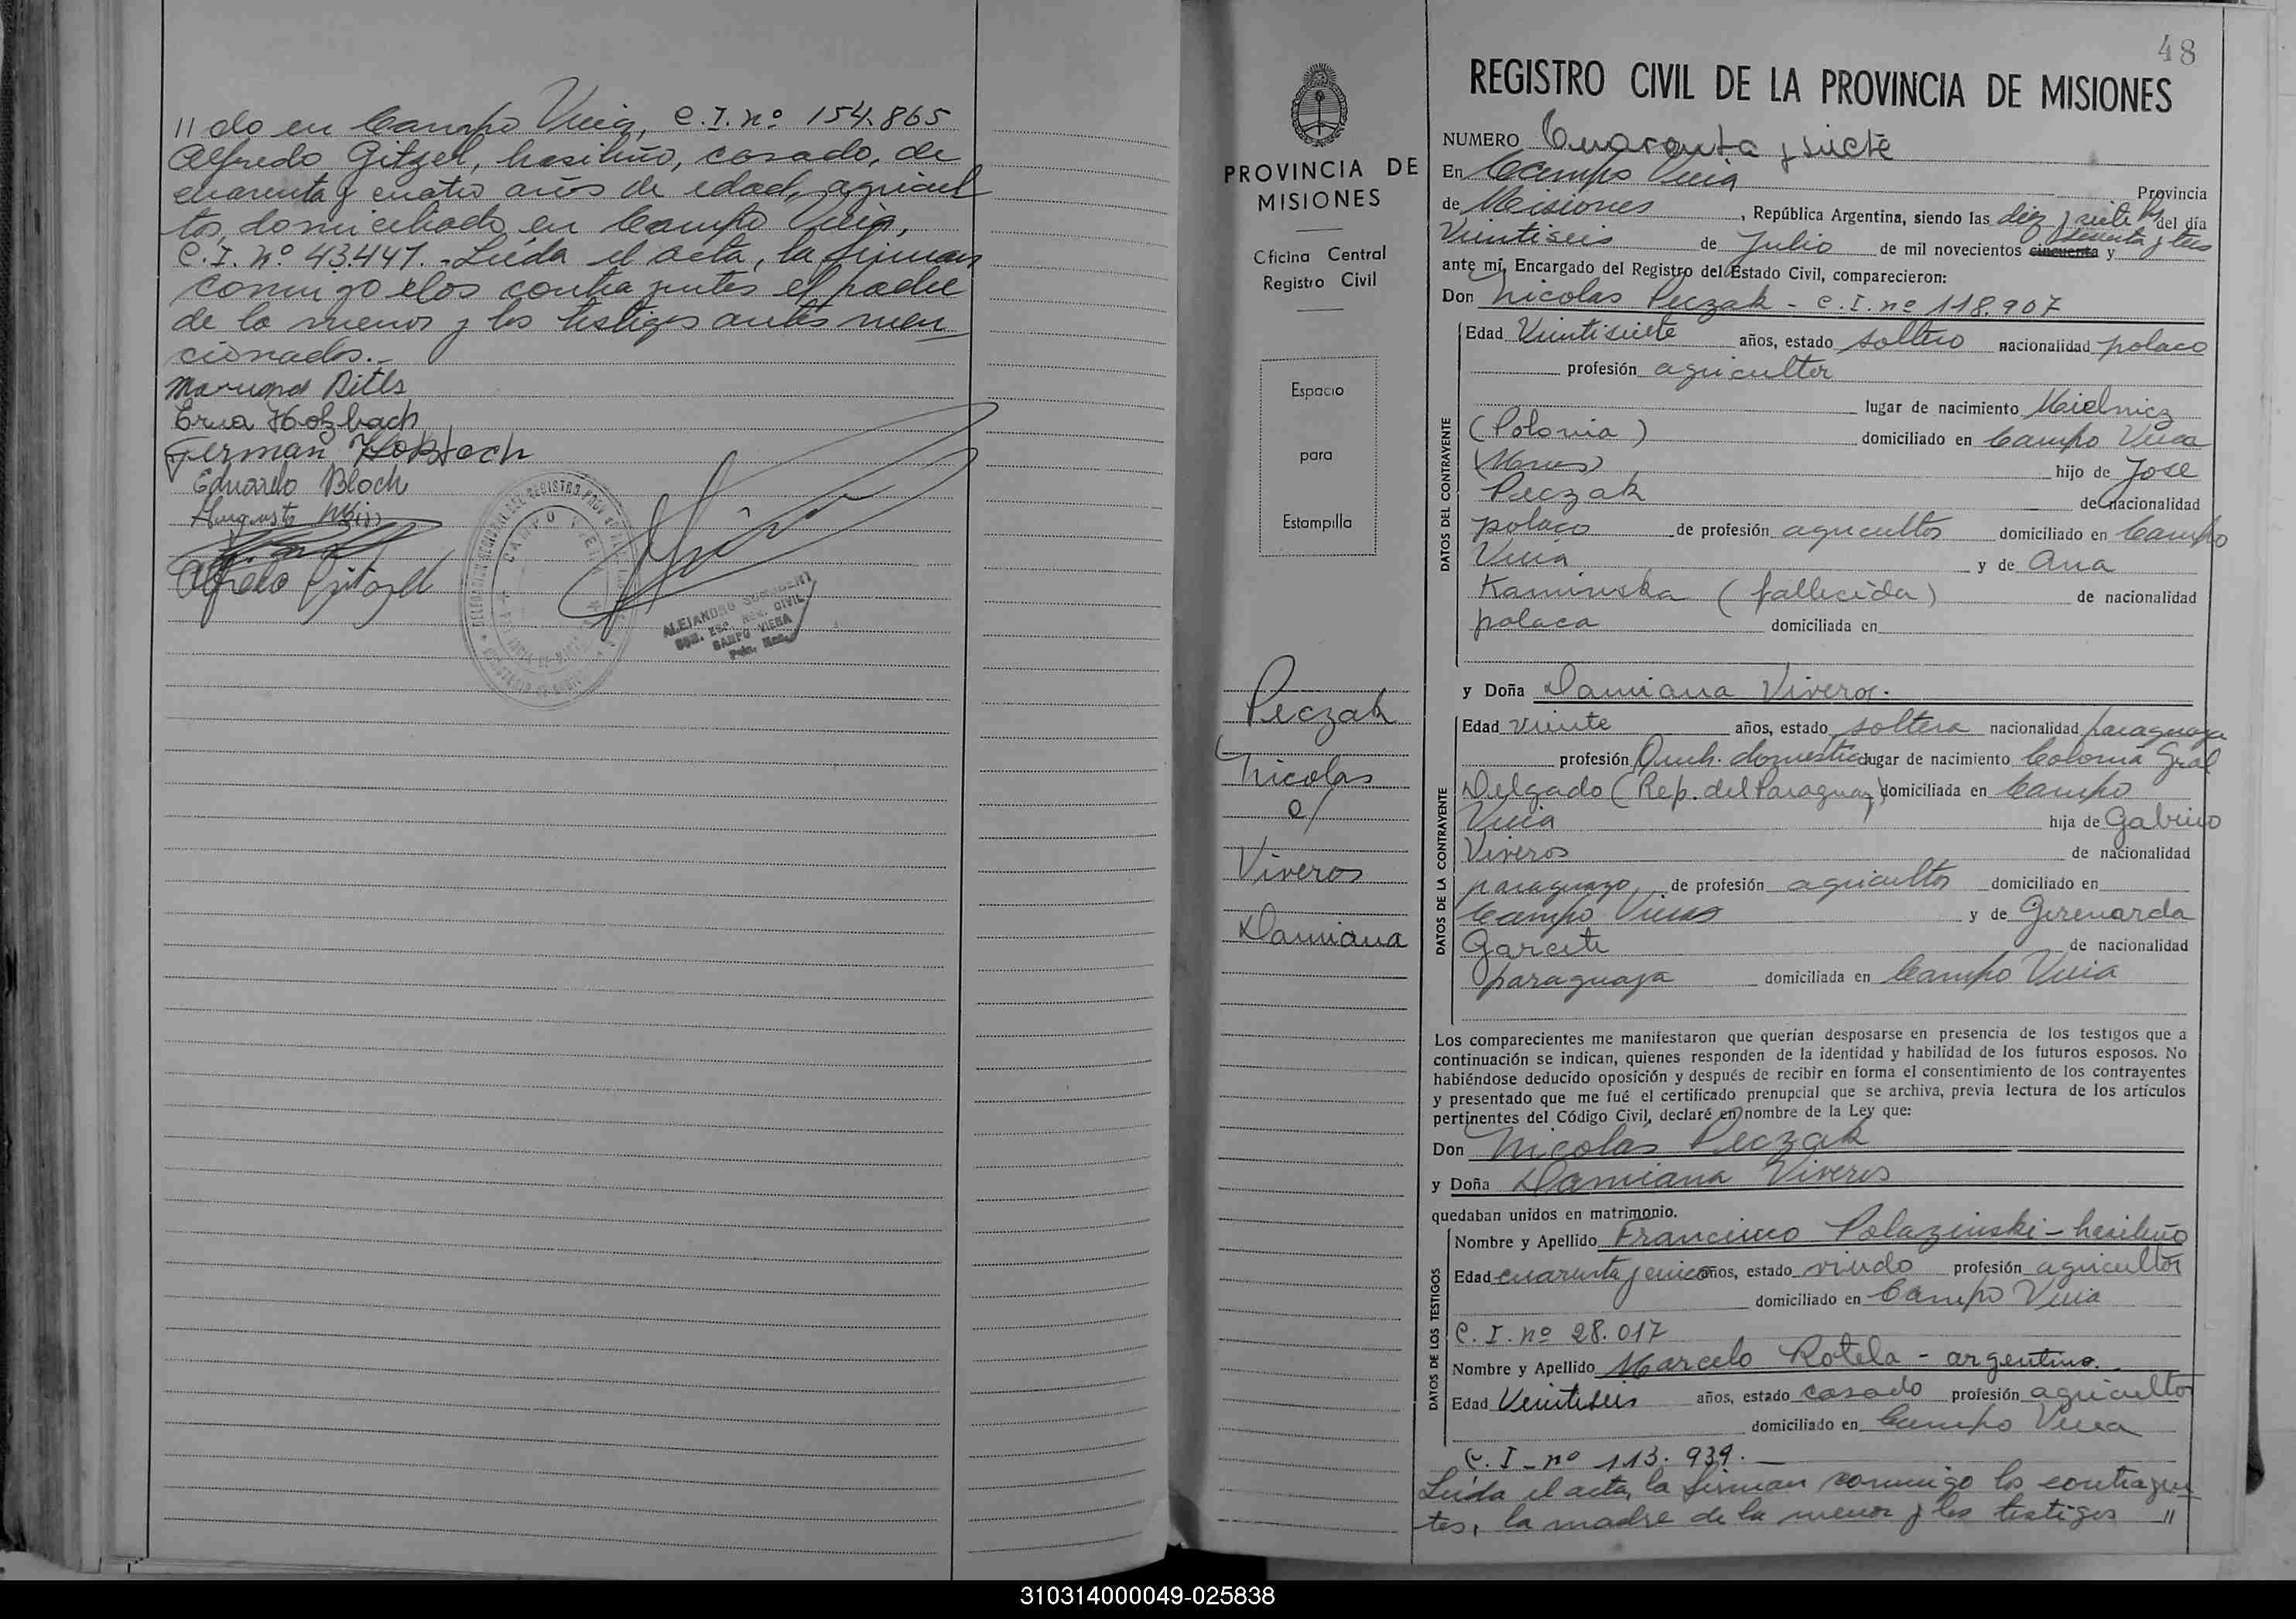 // do en Campo Viera, C.I. nº 154.865
Alfredo Gitzel, brasileño, casado, de
cuarenta y cuatro años de edad, agricul
tor, domiciliado en Campo Viera,
C.I. Nº 43.447.- Leída el acta, la firman
conmigo los contrayentes el padre
de la menor y los testigos antes men
cionados.-
Erna Holzbach
German Holzbach
Eduardo Bloch
Augusto
Alfredo Gitzel
CAMPO VIERA
ALEJANDRO
REG. CIVIL
CAMPO VIERA
48
REGISTRO CIVIL DE LA PROVINCIA DE MISIONES
PROVINCIA DE
MISIONES
Oficina Central
Registro Civil
Espacio
para
Estampilla
Peczak
Nicolas
c/
Viveros
Damiana
NUMERO Cuarenta y siete
En Campo Viera Provincia
de Misiones, República Argentina, siendo las diez y siete hs del día
Veintiseis de Julio de mil novecientos cincuenta y sesenta y tres
ante mí, Encargado del Registro del Estado Civil, comparecieron:
Don Nicolas Peczak - C.I. nº 118.907
DATOS DEL CONTRAYENTE
Edad Veintisiete años, estado soltero nacionalidad polaco
profesión agricultor
lugar de nacimiento Mielnicz
(Polonia) domiciliado en Campo Viera
(Mnes) hijo de Jose
Peczak de nacionalidad
polaco de profesión agricultor domiciliado en Campo
Viera y de Ana
Kaminska (fallecida) de nacionalidad
polaca domiciliada en
y Doña Damiana Viveros.
DATOS DE LA CONTRAYENTE
Edad veinte años, estado soltera nacionalidad paraguaya
profesión Queh. domestic lugar de nacimiento Colonia Gral
Delgado (Rep. del Paraguay) domiciliada en Campo
Viera hija de Gabino
Viveros de nacionalidad
paraguayo, de profesión agricultor domiciliado en
Campo Viera y de Gerenarda
Garcete de nacionalidad
paraguaya domiciliada en Campo Viera
Los comparecientes me manifestaron que querían desposarse en presencia de los testigos que a
continuación se indican, quienes responden de la identidad y habilidad de los futuros esposos. No
habiéndose deducido oposición y después de recibir en forma el consentimiento de los contrayentes
y presentado que me fué el certificado prenupcial que se archiva, previa lectura de los artículos
pertinentes del Código Civil, declaré en nombre de la Ley que:
Don Nicolas Peczak
y Doña Damiana Viveros
quedaban unidos en matrimonio.
DATOS DE LOS TESTIGOS
Nombre y Apellido Francisco Polazinski - brasileño
Edad cuarenta y cinco años, estado viudo profesión agricultor
domiciliado en Campo Viera
C. I. nº 28.017
Nombre y Apellido Marcelo Rotela - argentino.
Edad Veintiseis años, estado casado profesión agricultor
domiciliado en Campo Viera
C. I - nº 113.939.-
Leída el acta, la firman conmigo los contrayen
tes, la madre de la menor y los testigos //
310314000049-025838